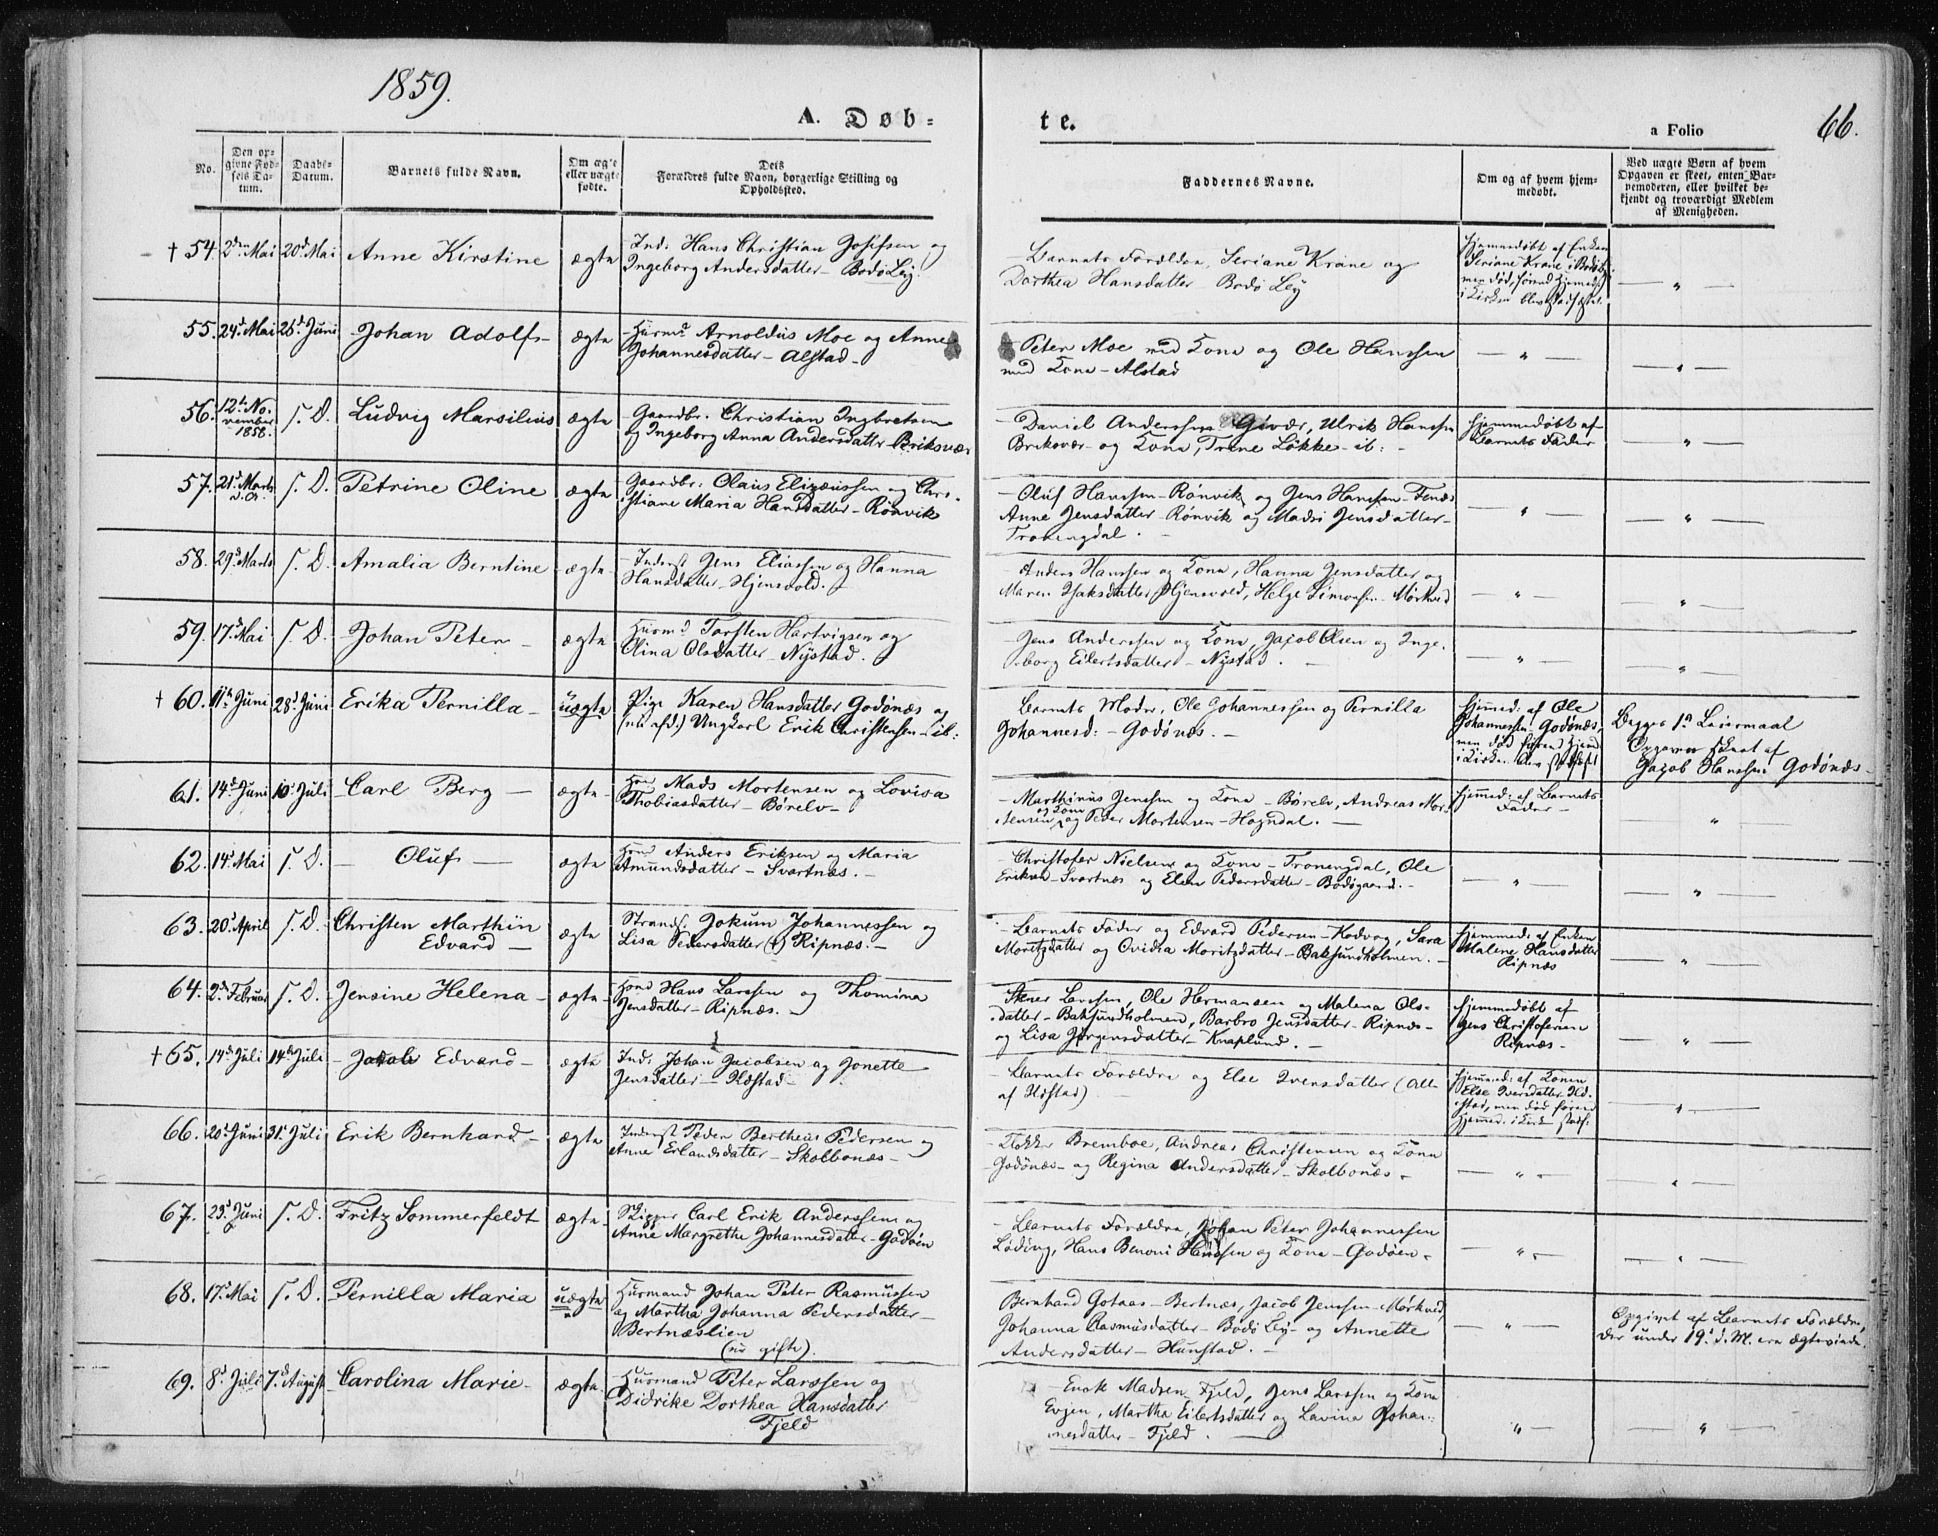 1859.
A. Døb-
te.
a Folio
66.
No.
Den opgivne Fødsels Datum.
Daabs-Datum.
Barnets fulde Navn.
Om ægte eller uægte fødte.
Dets Forældres fulde Navn, borgerlige Stilling og Opholdssted.
Faddernes Navne.
Om og af hvem hjemmedøbt.
Ved uægte Børn af hvem Opgaven er skeet, enten Barnemoderen, eller hvilket bekjendt og troværdigt Medlem af Menigheden.
† 54. 2den Mai 20d Mai Anne Kirstine ægte
Ind: Hans Christian Josefsen og
Ingeborg Andersdatter - Bodø Leÿ.
Barnets Forældre, Seriane Krane og
Dorthea Hansdatter Bodø Leÿ
Hjemmedøbt af Enken
Seriane Krane i Bodø
men død, førend Hjemmed:
i Kirken blev stadfæstet.
— " —
55. 24d Mai 26d Juni Johan Adolf ægte
Huusmd Arnoldus Moe og Anne
Johannesdatter - Alstad
Peter Moe med Kone og Ole Hanssen
med Kone - Alstad
— " —
— " —
56. 12te November 1858. S. D. Ludvig Marsilius ægte
Gaardbr. Christian Ingbretsen
og Ingeborg Anna Andersdatter Briksvær
Daniel Anderssen Givær, Ulrik Hanssen
Briksvær og Kone, Trine Løkke ib:
Hjemmedøbt af
Barnets Fader
— " —
57. 21d Marts S. D. Petrine Oline ægte
Gaardbr: Olaus Elizæussen og Chri-
stiane Maria Hansdatter - Rønvik
Oluf Hanssen - Rønvik og Jens Hanssen - Fenes
Anne Jensdatter Rønvik og Madsi Jensdatter
Tronengdal.
— " —
— " —
58. 29d Marts S. D. Amalia Berntine ægte
Inderst Jens Eliassen og Hanna
Hansdatter Hjensvold.
Anders Hanssen og Kone, Hanna Jensdatter og
Maren Isaksdatter Hjensvold, Helge Simonsen - Mørkved
— " —
— " —
59. 17d Mai S. D. Johan Peter ægte
Huusmd Torsten Hartvigsen og
Olina Olsdatter Nystad.
Jens Anderssen og Kone, Jacob Olsen og Inge-
borg Eilertsdatter - Nystad.
— " —
— " —
† 60. 11te Juni 28d Juni Erika Pernilla uægte
Pige Karen Hansdatter Godønæs og
Ungkarl Erik Christensen - ib:
Barnets Moder, Ole Johannessen og Pernilla
Johannesd: - Godønæs.
Hjemmed: af Ole
Johannessen Godønæs,
men død førend Hjemd
i Kirken blev stadfæst
Begges 1ste Leiermaal
Opgaven skeet af
Jacob Hanssen Godønæs
61. 14d Juni 10d Juli Carl Berg ægte
Mads Mortensen og Lovisa
Thobiasdatter - Børelv
Marthinus Jenssen og Kone - Børelv, Andreas Mor-
tensen og Kone og Peder Mortensen - Hogndal.
Hjemmed: af Barnets
Fader
"
62. 14d Mai S. D. Oluf ægte
Anders Eriksen og Maria
Amundsdatter - Svartnæs.
Christofer Nielsen og Kone - Tronengdal, Ole
Eriksen Svartnæs og Elen Pedersdatter - Bodøgaard.
— " —
"
63. 20d April S. D. Christen Marthin
Edvard ægte
Strands. Jokum Johannessen og
Lisa Pedersdatter (†) Ripnæs.
Barnets Fader og Edvard Pedersen - Kodvog, Sara
Moritzdatter og Ovidia Moritzdatter - Baksundholmen.
Hjemmed: af Enken
Malene Hansdatter
Ripnæs
— " —
64. 2den Februar S. D. Jensine Helena ægte
Hans Larssen og Thomina
Jensdatter - Ripnæs.
Stener Larssen, Ole Hermansen og Malena Ols-
datter - Baksundholmen, Barbro Jensdatter - Ripnæs
og Lisa Jørgensdatter - Knaplund.
Hjemmedøbt af
Jens Christofersen
Ripnæs
— " —
† 65. 14d Juli 14d Juli Jacob Edvard ægte
Ind: Johan Jacobsen og Jonette
Jensdatter
Barnets Forældre og Else Iversdatter (Alle
af
Hjemmed: af Konen
Else Iversdatter
men død førend
Hjemmed. i Kirk stadf:
— " —
66. 20d Juni 31d Juli Erik Bernhard ægte
Inderst Peder Bertheus Pedersen og
Anne Erlandsdatter - Skolbonæs
Klokker Bremboe, Andreas Christensen og Kone
Godønæs og Regina Andersdatter - Skolbonæs
— " —
"
67. 23d Juni S. D. Fritz Sommerfeldt ægte
Skipper Carl Erik Anderssen og
Anne Margrethe Johannesdatter - Godøen
Barnets Forældre, Johan Peter Johannessen
Løding, Hans Benoni og Kone - Godøen
— " —
"
68. 17d Mai S. D. Pernilla Maria uægte
Huusmand Johan Peter Rasmussen
og Martha Johanna Pedersdatter
Bertnæslien
(nu gifte).
Bernhard Gotaas - Bertnæs, Jacob Jenssen - Mørkved,
Johanna Rasmusdatter - Bodø Leÿ og Annette
Andersdatter - Hunstad.
— " —
Opgivet af Barnets Forældre,
der under 19d d. M. ere ægteviede.
69. 8d Juli 7d August Carolina Marie ægte
Huusmand Peter Larssen og
Didrike Dorthea Hansdatter
Fjeld
Enok Madsen Fjeld, Jens Larssen og Kone
Evjen, Martha Eilertsdatter og Lavina Johan-
nesdatter - Fjeld.
"
— " —